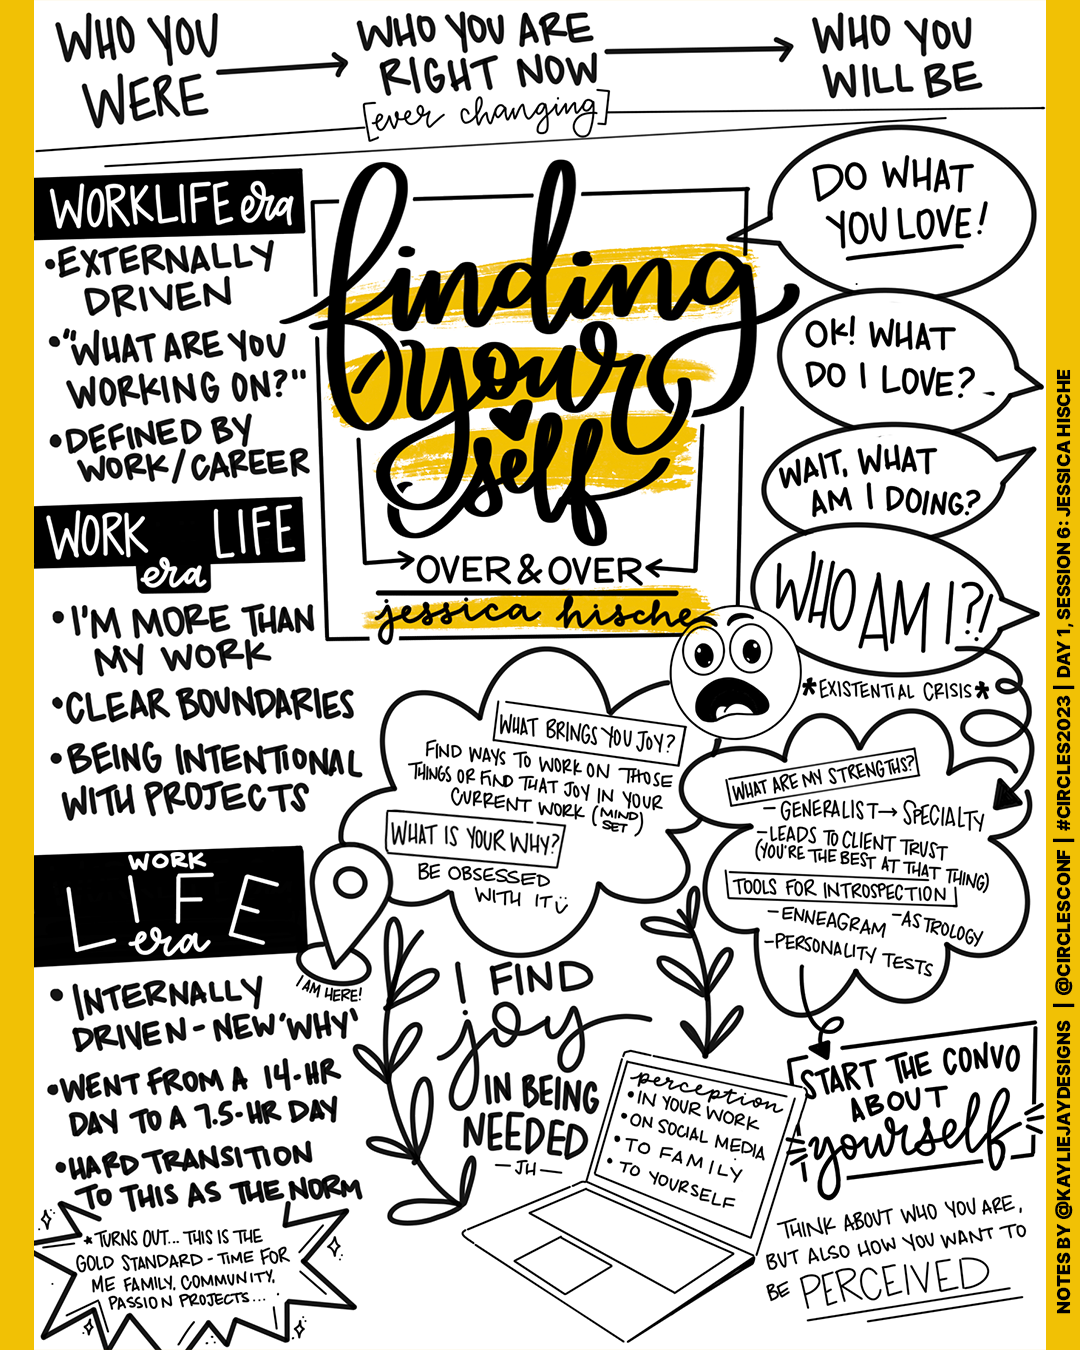 WHO YOU
WERE
WHO YOU ARE
RIGHT NOW
[ever changing]
WHO YOU
WILL BE
WORKLIFE era
•EXTERNALLY
DRIVEN
•"WHAT ARE YOU
WORKING ON?"
•DEFINED BY
WORK/CAREER
WORK LIFE
era
•I'M MORE THAN
MY WORK
•CLEAR BOUNDARIES
•BEING INTENTIONAL
WITH PROJECTS
WORK
LIFE
era
•INTERNALLY
DRIVEN-NEW 'WHY'
•WENT FROM A 14-HR
DAY TO A 7.5-HR DAY
•HARD TRANSITION
TO THIS AS THE NORM
*TURNS OUT... THIS IS THE
GOLD STANDARD - TIME FOR
ME FAMILY, COMMUNITY,
PASSION PROJECTS...
finding
your
self
OVER & OVER
jessica hische
DO WHAT
YOU LOVE!
OK! WHAT
DO I LOVE?
WAIT, WHAT
AM I DOING?
WHO AM I?!
*EXISTENTIAL CRISIS*
WHAT BRINGS YOU JOY?
FIND WAYS TO WORK ON THOSE
THINGS OR FIND THAT JOY IN YOUR
CURRENT WORK (MIND
SET)
WHAT IS YOUR WHY?
BE OBSESSED
WITH IT
WHAT ARE MY STRENGTHS?
- GENERALIST → SPECIALTY
- LEADS TO CLIENT TRUST
(YOU'RE THE BEST AT THAT THING)
TOOLS FOR INTROSPECTION
-ENNEAGRAM -ASTROLOGY
-PERSONALITY TESTS
I AM HERE!
I FIND
joy
IN BEING
NEEDED
-JH-
perception
•IN YOUR WORK
•ON SOCIAL MEDIA
•TO FAMILY
•TO YOURSELF
START THE CONVO
ABOUT
yourself
THINK ABOUT WHO YOU ARE,
BUT ALSO HOW YOU WANT TO
BE PERCEIVED
NOTES BY @KAYLIEJAYDESIGNS | @CIRCLESCONF | #CIRCLES2023 | DAY 1, SESSION 6: JESSICA HISCHE